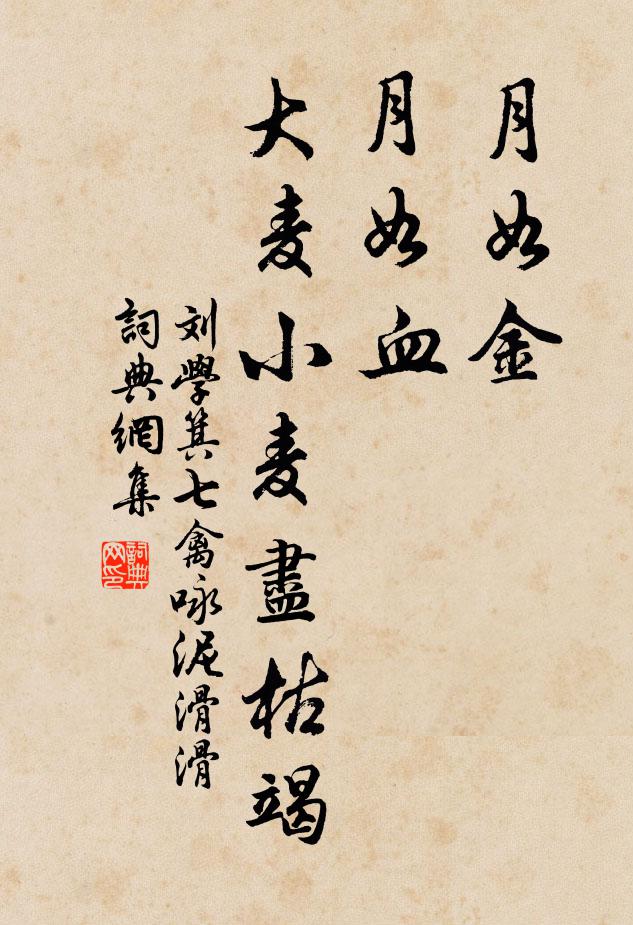 月如金
月如血
大麦小麦盡枯竭
刘學箕七禽咏泥滑滑
詞典網集
詞典网印